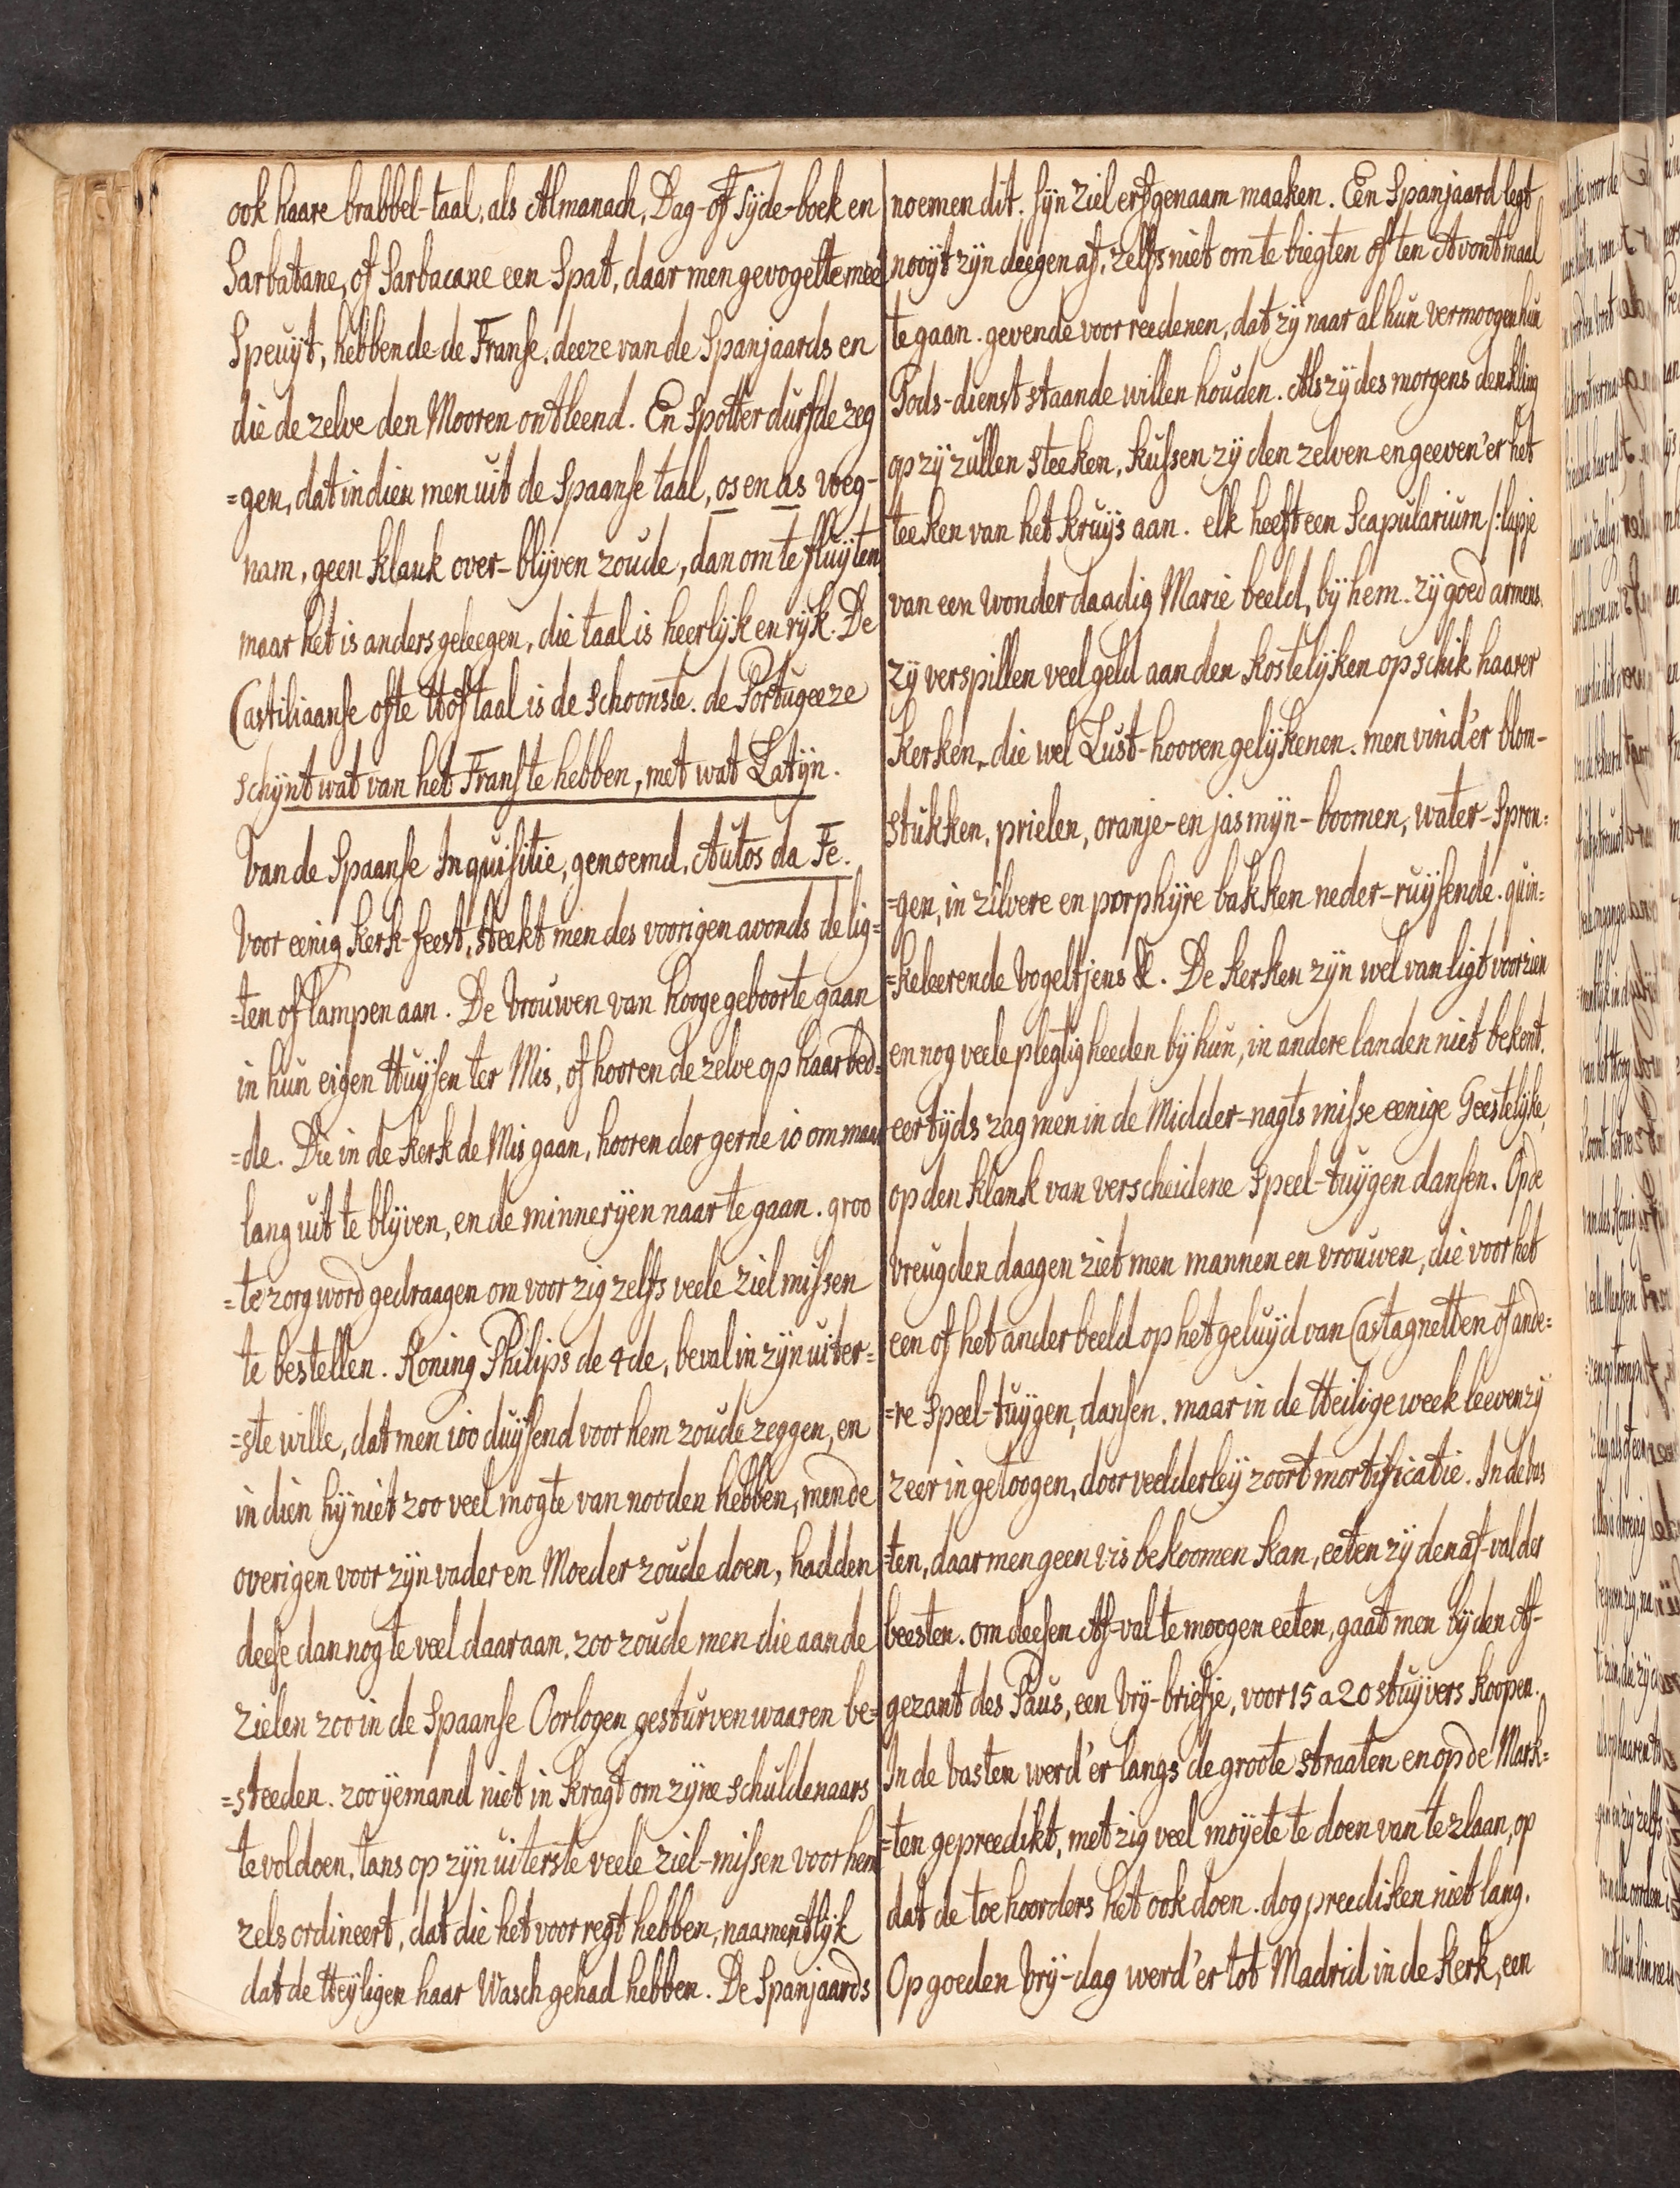 ook haare brabbel-taal, als Almanach, Dag-of Tyde-boek en
Sarbatane, of Sarbacane een Spat, daar men gevogelte mee
Speuÿt, hebbende de Franse. deeze van de Spanjaards en
die de zelve den Mooren ontleend. En Spotter durfde zeg
=gen, dat indien men uit de Spaanse taal, os en as weg-
nam, geen klank over-blÿven zoude, dan om te fluÿten.
maar het is anders geleegen, die taal is heerlÿk en rÿk. De
Castiliaanse ofte Hoftaal is de schoonste. de Portugeeze
schÿnt wat van het Franste hebben, met wat Latÿn.
Van de Spaanse Inquisitie, genoemd, Autos da Fe.
Voor eenig Kerk-feest, steekt men des voorigen avonds de lig=
=ten of lampen aan. De Vrouwen van hooge geboorte gaan
in hun eigen Huÿsen ter Mis, of hooren de zelve op haar bed=
=de. Die in de Kerk de Mis gaan, hooren der gerne 10 om maar
lang uit te blÿven, en de minnerÿen naar te gaan. groo
=te zorg word gedraagen om voor zig zelfs veele ziel missen
te bestellen. Koning Philips de 4de, beval in zÿn uiter=
=ste wille, dat men 100 duÿsend voor hem zoude zeggen, en
in dien hÿ niet zoo veel mogte van nooden hebben, men de
overigen voor zÿn vader en Moeder zoude doen, hadden
deese dan nog te veel daar aan. zoo zoude men die aan de
zielen zoo in de Spaanse Oorlogen gesturven waaren be=
=steeden. zoo ÿemand niet in kragt om zÿne schuldenaars
te voldoen, tans op zÿn uiterste veele ziel-missen voor hem
zels ordineert, dat die het voor regt hebben, naamentlÿk
dat de Heÿligen haar Wasch gehad hebben. De Spanjaards
noemen dit. sÿn ziel erfgenaam maaken. Een Spanjaard legt
nooÿt zÿn deegen af, zelfs niet om te biegten of ten Avontmaal
te gaan. gevende voor reedenen, dat zÿ naar al hun vermoogen hun
Gods-dienst staande willen houden. Als zÿ des morgens den kling
op zÿ zullen steeken, kussen zÿ den zelven en geeven'er het
teeken van het kruÿs aan. elk heeft een Scapularium /:lapje
van een wonderdaadig Marie beeld, bÿ hem. zÿ goed armens.
zÿ verspillen veel geld aan den kostelÿken opschik haarer
Kerken, die wel Lust-hooven gelÿkenen. men vind'er blom-
stukken, prielen, oranje-en jasmÿn-boomen, water-spron=
=gen, in zilvere en porphÿre bakken neder-ruÿsende. quin=
=keleerende Vogeltjens &. De Kerken zÿn wel van ligt voorzien
en nog veele plegtigheeden bÿ hun, in andere landen niet bekent.
eertÿds zag men in de Midder-nagts misse eenige Geestelÿke,
op den klank van verscheidene Speel-tuÿgen dansen. Op de
Vreugden daagen ziet men mannen en vrouwen, die voor het
een of het ander beeld op het geluÿd van Castagnetten of ande=
=re Speel-tuÿgen, dansen. maar in de Heilige week leeven zÿ
zeer ingetoogen, door veelderleÿ zoort mortificatie. In de vas
=ten, daar men geen vis bekoomen kan, eeten zÿ den af-val der
beesten. om deesen Af-val te moogen eeten, gaat men bÿ den Af-
gezant des Paus, een Vrÿ-briefje, voor 15 a 20 stuÿvers koopen.
In de vasten werd'er langs de groote straaten en op de Mark=
=ten gepreedikt, met zig veel moÿete te doen van te zlaan, op
dat de toehoorders het ook doen. dog preediken niet lang.
Op goeden Vrÿ-dag werd'er tot Madrid in de Kerk, een